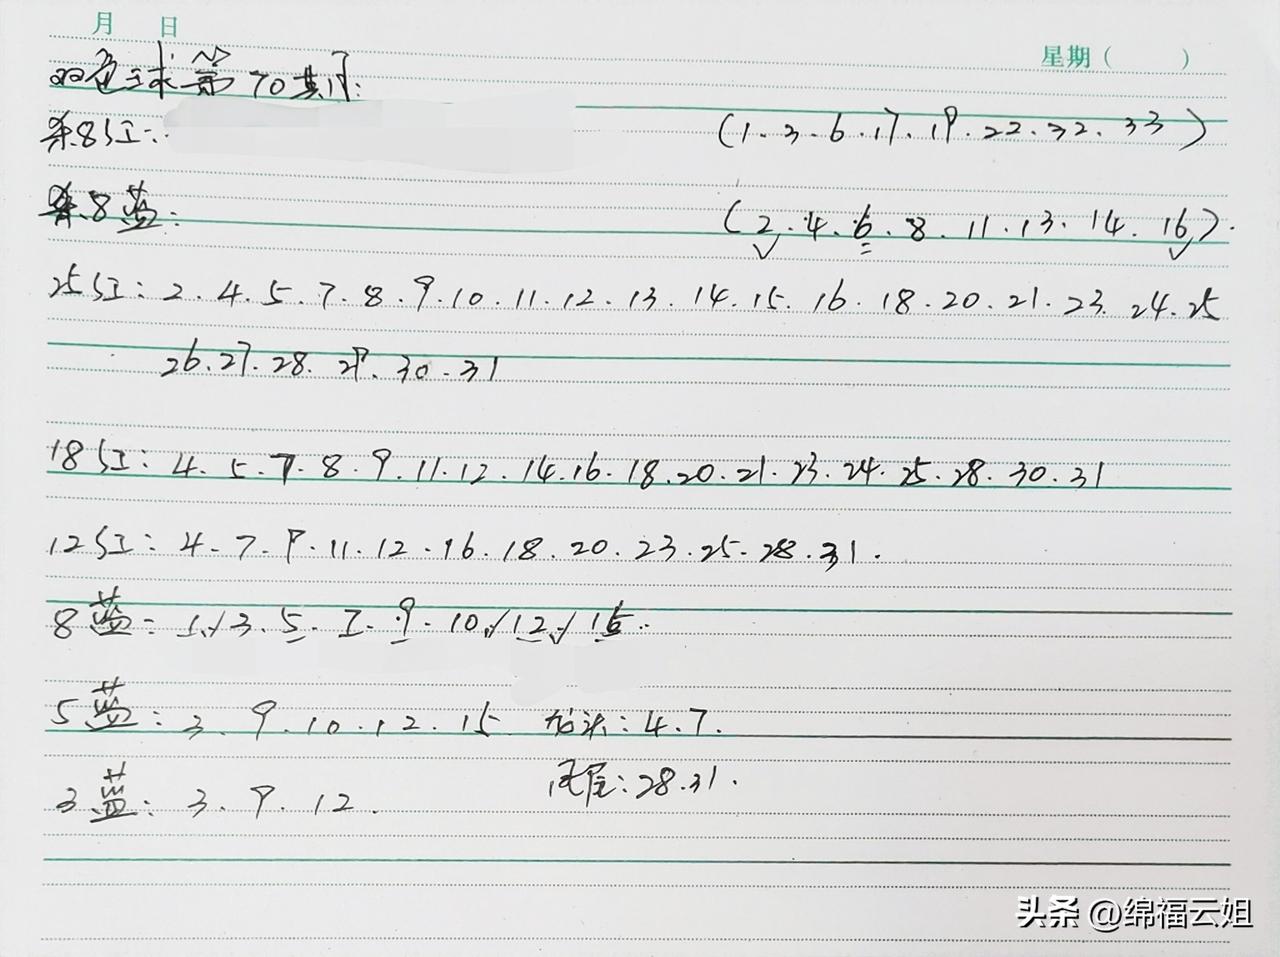 月 日
星期( )
双色球第70期:
杀8红: (1.3.6.17.19.22.32.33)
杀8蓝: (2.4.6.8.11.13.14.16).
25红: 2.4.5.7.8.9.10.11.12.13.14.15.16.18.20.21.23.24.25
26.27.28.29.30.31
18红: 4.5.7.8.9.11.12.14.16.18.20.21.23.24.25.28.30.31
12红: 4.7.9.11.12.16.18.20.23.25.28.31.
8蓝: 1.3.5.7.9.10.12.15.
5蓝: 3.9.10.12.15 龙头:4.7.
凤尾:28.31.
3蓝: 3.9.12.
头条 @绵福云姐